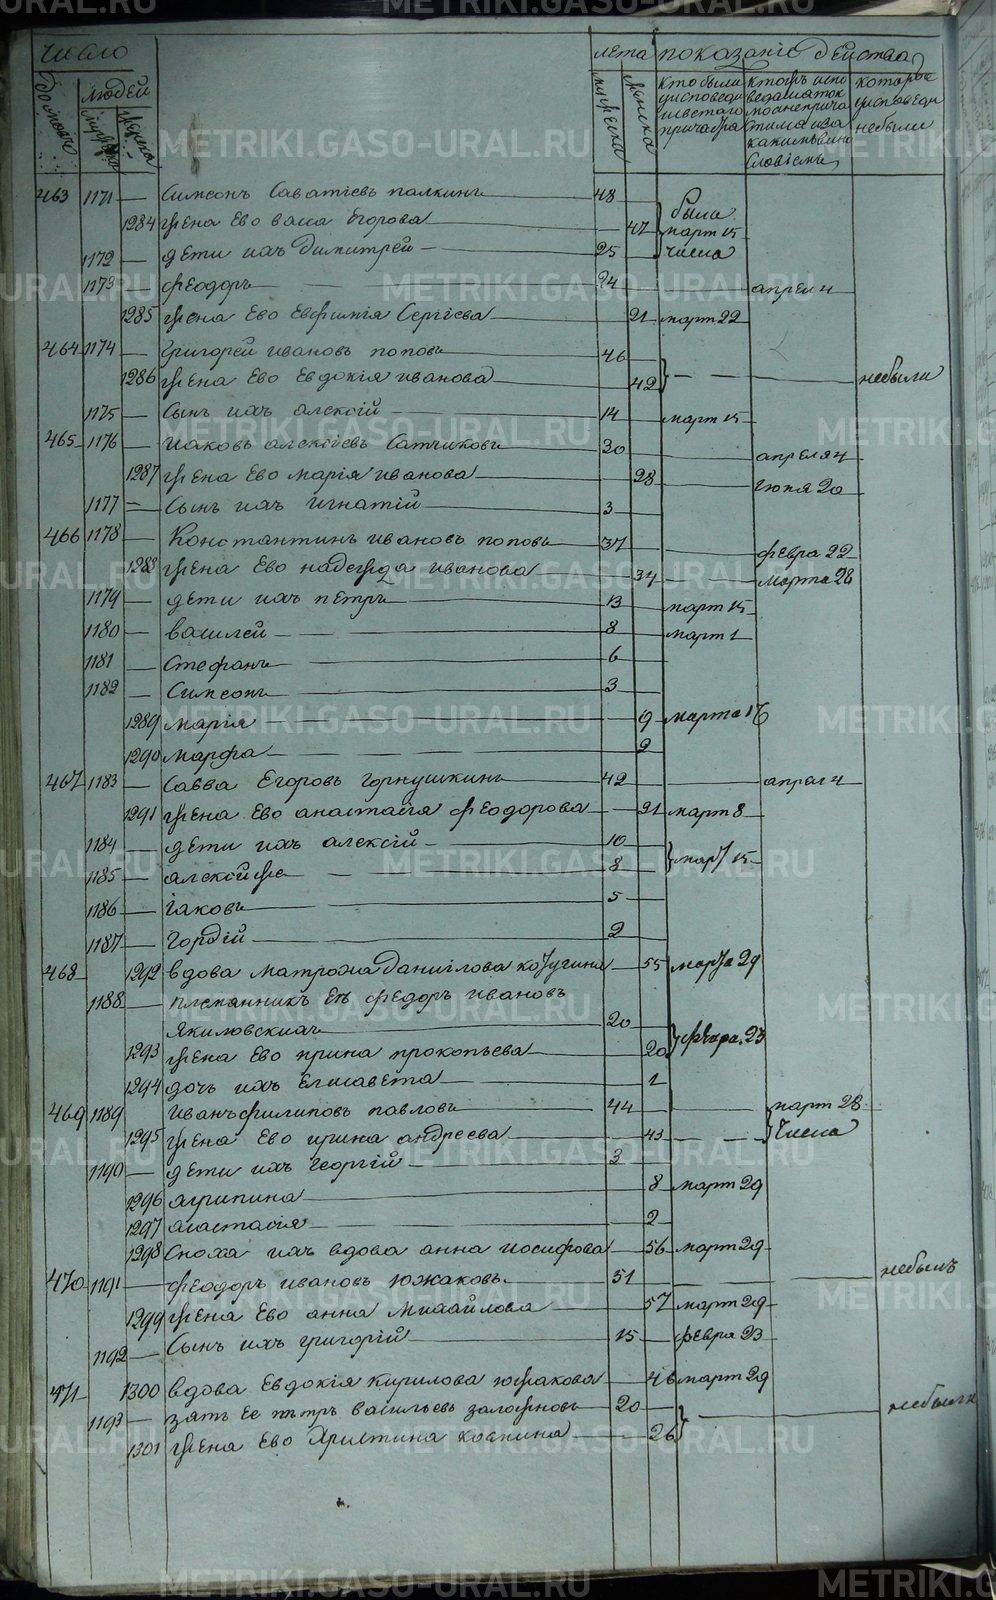 число лета показание действа
домовъ людей мужеска женска кто были у исповеди и светаго причастия которые у исповеди не были
мужеска женска
463 1171 Симеонъ Саватиевъ палкинъ 48
1284 жена Ево васа Егорова 47 была март 15 числа
1172 дети ихъ Димитрей 25
1173 феодоръ 24 апрел 4
1285 жена Ево Евфимия Сергиева 21 март 22
464 1174 григорей ивановъ поповъ 46
1286 жена Ево Евдокия иванова 42 небыли
1175 Сынъ ихъ алексий 14 март 15
465 1176 иаковъ алексиевъ Сатчиковъ 30 апреля 4
1287 жена Ево мария иванова 28 июня 20
1177 Сынъ ихъ игнатий 3
466 1178 Константинъ ивановъ поповъ 37 февра 22
1288 жена Ево надежда иванова 34 марта 28
1179 дети ихъ петръ 13 март 15
1180 василей 8 март 1
1181 Стефанъ 6
1182 Симеонъ 3
1289 мария 9 марта 16
1290 марфа 2
467 1183 Савва Егоровъ горнушкинъ 42 апрел 4
1291 жена Ево анастасия феодорова 21 март 8
1184 дети ихъ алексий 10 март 15
1185 алексий же 8
1186 Iаковъ 5
1187 Гордий 2
468 1292 вдова матрона Даниилова 55 марта 29
1188 племянникъ Ея федоръ ивановъ
Якиловскихъ 20
1293 жена Ево ирина прокопьева 20 февра. 23
1294 дочь ихъ Елисавета 1
469 1189 иванъ филиповъ павловъ 44 март 28
1295 жена Ево ирина андреева 43 числа
1190 дети ихъ георгий 3
1296 агрипина 8 март 29
1297 анастасия 2
1298 Сноха ихъ вдова анна иосифова 56 март 29
470 1191 феодоръ ивановъ южаковъ 51 небылъ
1299 жена Ево анна михайлова 57 март 29
1192 Сынъ ихъ григорий 15 февра 23
471 1300 вдова Евдокия кирилова южакова 46 март 29
1193 зять Ее петръ васильевъ 20 небыли
1301 жена Ево Христина 26
METRIKI.GASO-URAL.RU